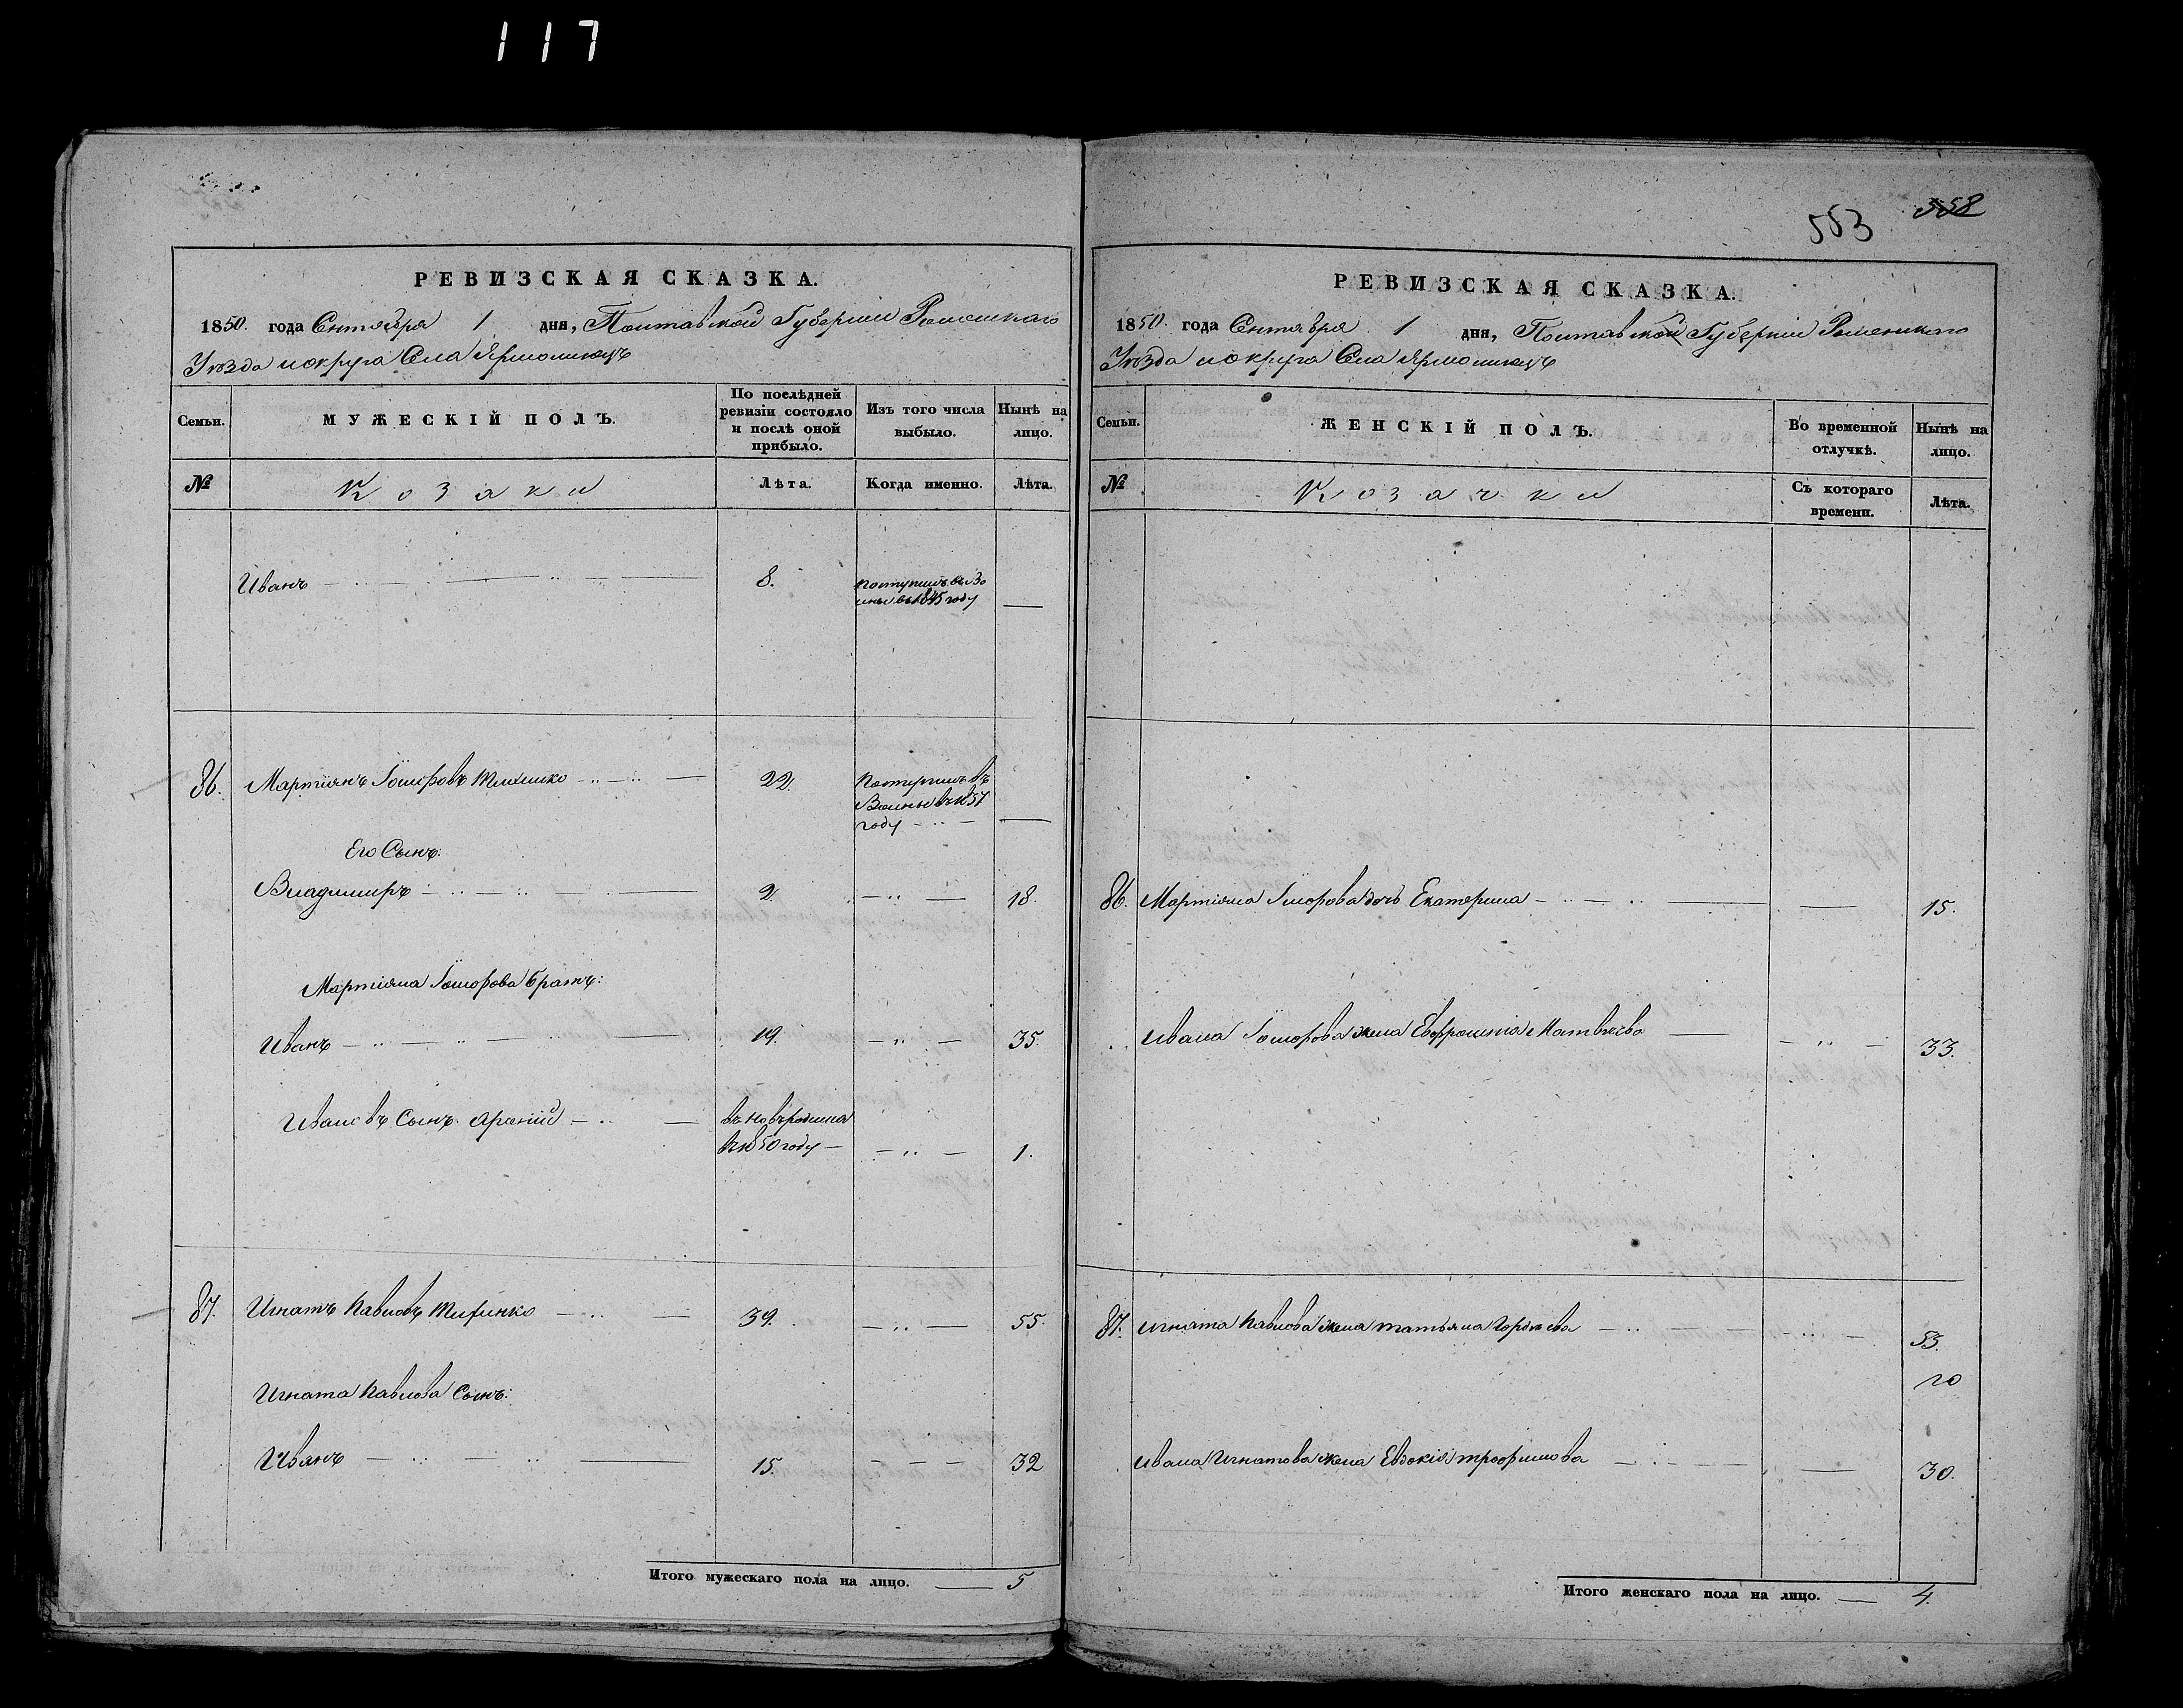 117
553 558
РЕВИЗСКАЯ СКАЗКА.
1850. года Сентября 1 дня, Полтавской Губернии Роменскаго
Уѣзда и округа Села Ярмолинецъ
Семьи.
МУЖЕСКІЙ ПОЛЪ.
По послѣдней ревизіи состояло и послѣ оной прибыло.
Изъ того числа выбыло.
Нынѣ на лицо.
№
Козаки
Лѣта.
Когда именно.
Лѣта.
Иванъ 8.
году
86. Мартіянъ Тихинко 22. Поступилъ въ
году
Его Сынъ:
Владимиръ 2. 18.
Мартіяна братъ:
Иванъ 19. 35.
Ивановъ Сынъ
въ 1850 году 1.
87. Игнатъ Павловъ Тихинко 39. 55.
Игната Павлова Сынъ:
Иванъ 15. 32
Итого мужескаго пола на лицо. 5
РЕВИЗСКАЯ СКАЗКА.
1850. года Сентября 1 дня, Полтавской Губерніи Роменскаго
Уѣзда и округа Села Ярмолинецъ
Семьи.
ЖЕНСКІЙ ПОЛЪ.
Во временной отлучкѣ.
Нынѣ на лицо.
№
Козачки
Съ котораго времени.
Лѣта.
86. Мартіяна дочь Екатерина 15.
Ивана жена Евфросинія Матвѣева 33.
87. Игната Павлова жена Татьяна Гордѣева 53.
Ивана Игнатова жена Евдокія Трофимова 30.
Итого женскаго пола на лицо. 4.